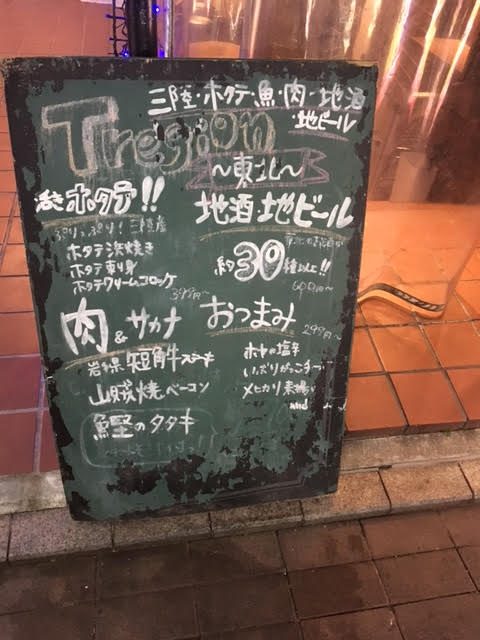 三陸・ホタテ・魚・肉・地酒
・地ビール
Tregion
〜東北〜
活きホタテ!!
ぷりっぷり!三陸産
ホタテ浜焼き
ホタテ刺身
ホタテクリームコロッケ
399円〜
地酒 地ビール
約30種以上!!
肉&サカナ
岩手県短角牛ステーキ
山賊焼ベーコン
鰹のタタキ
おつまみ
299円〜
ホヤの塩辛
いぶりがっこチーズ
メヒカリ素揚げ
and